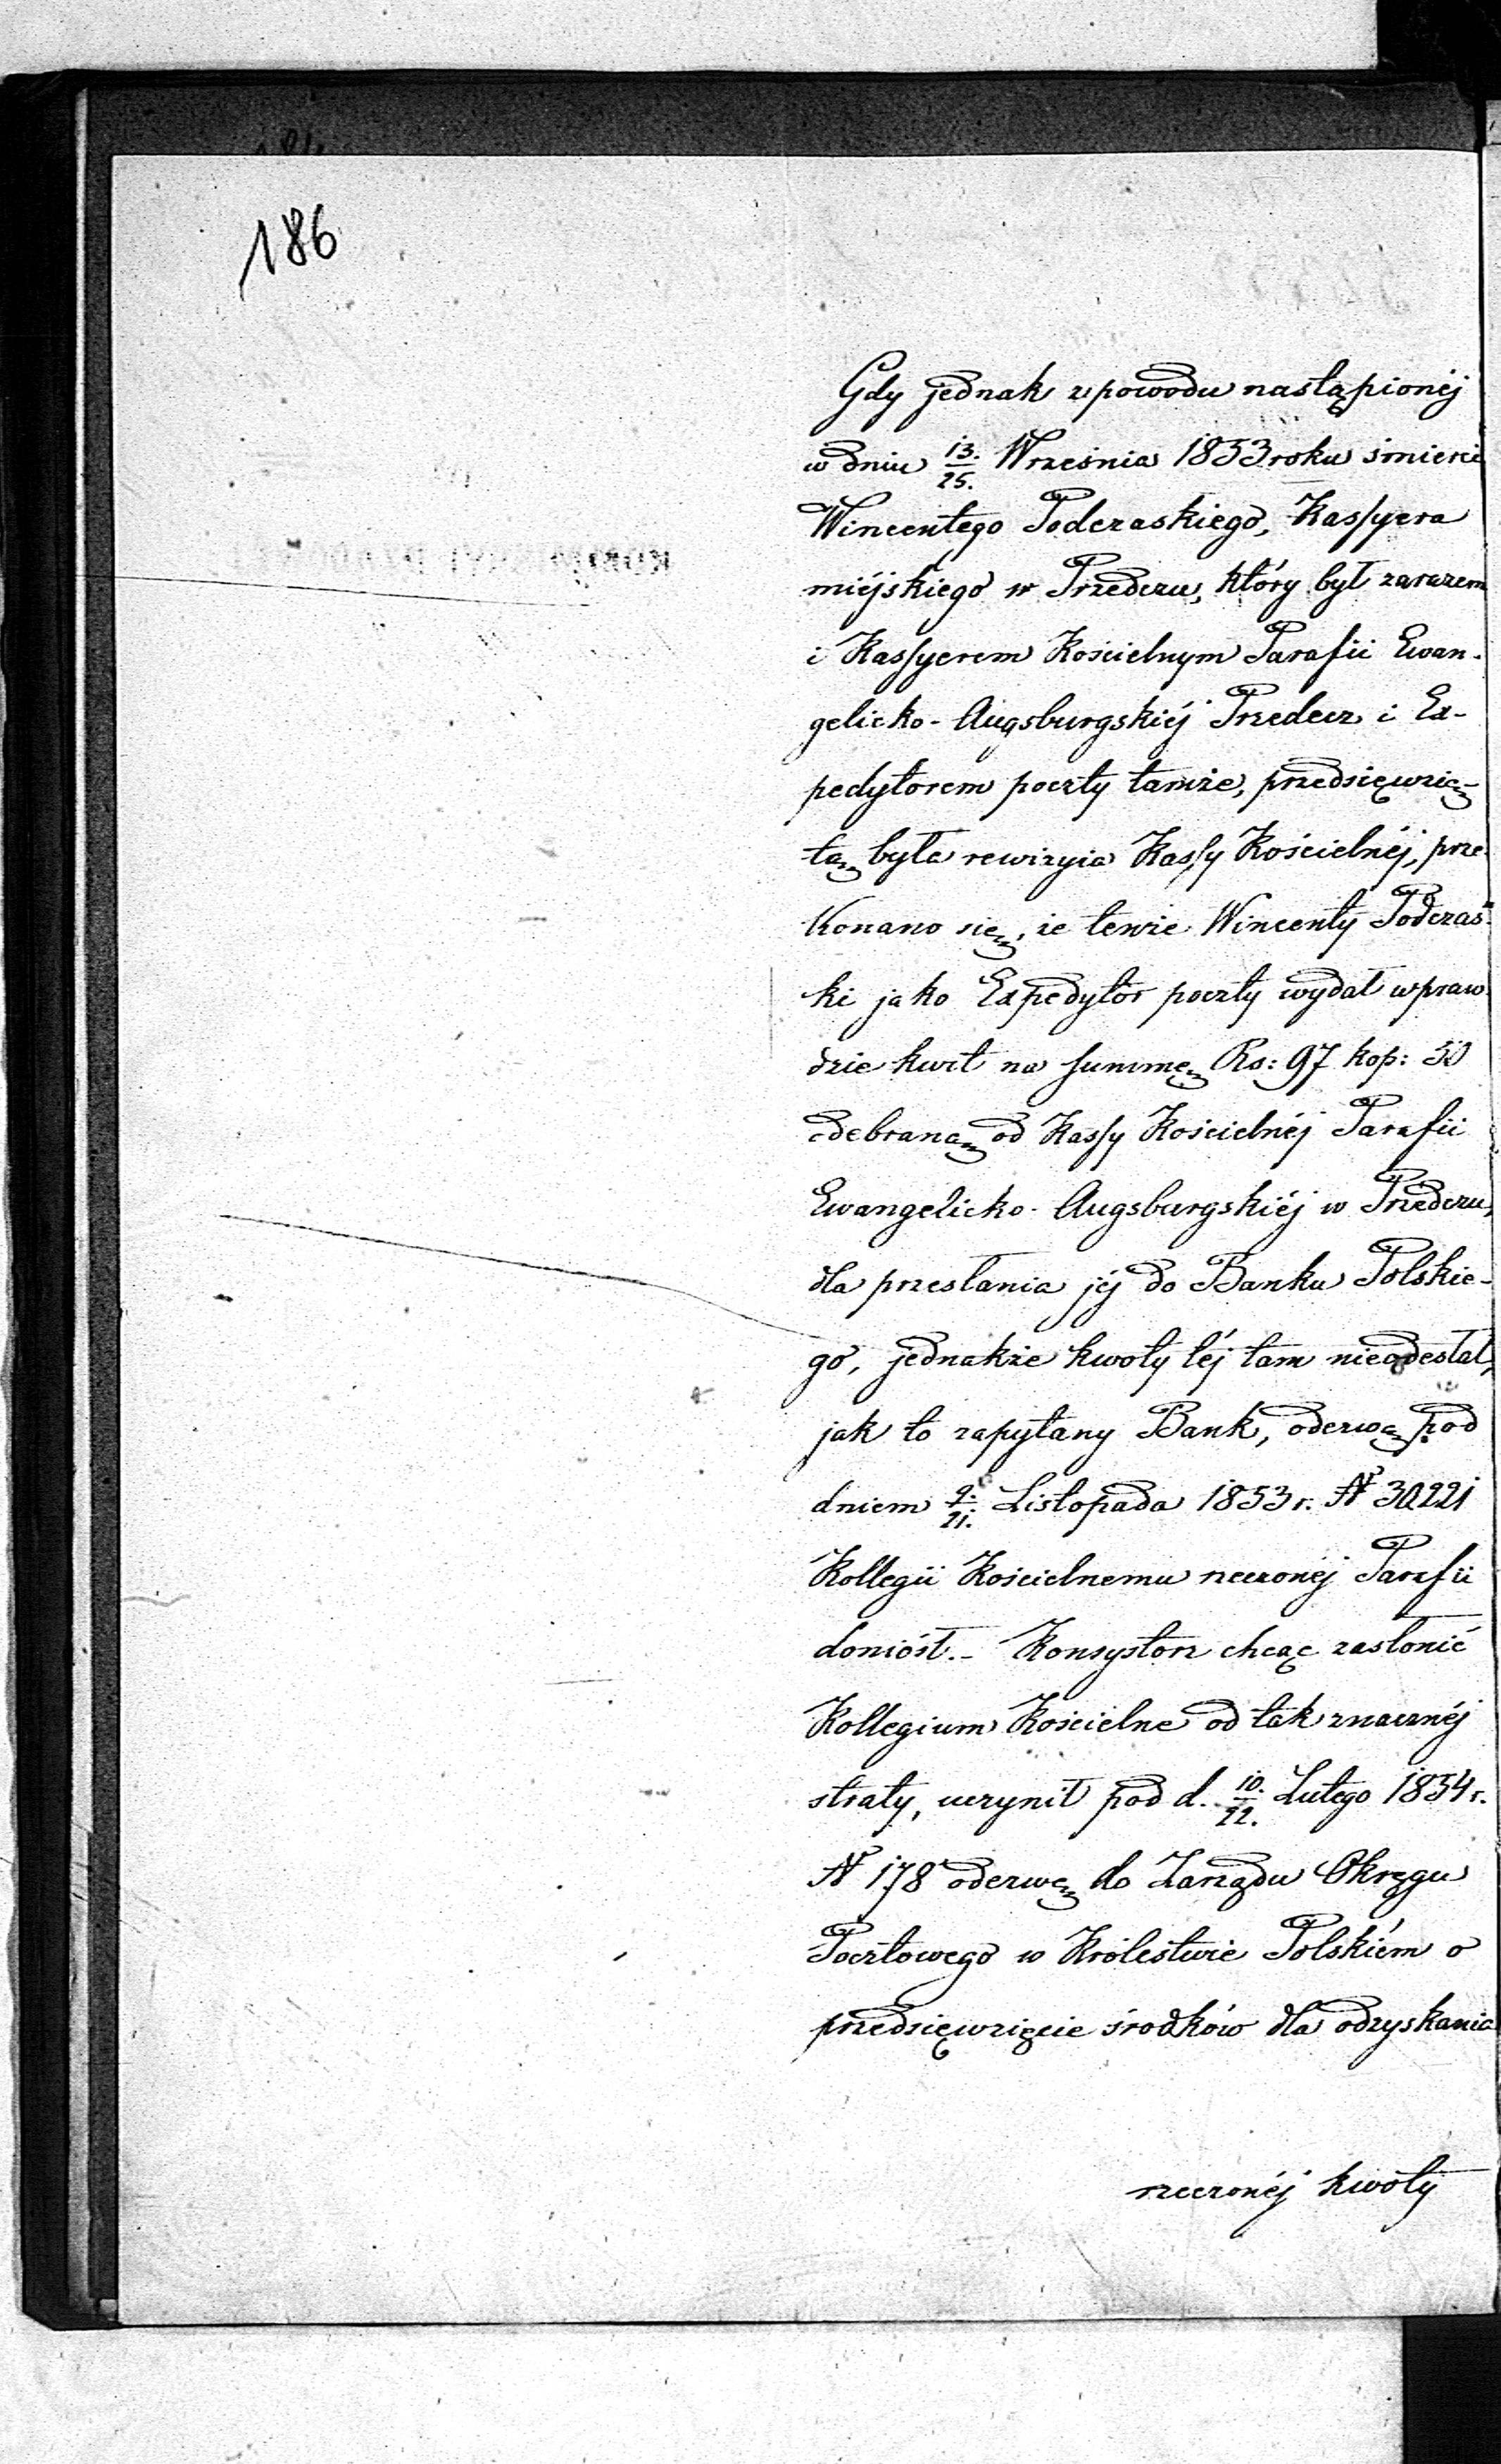 186
Gdy jednak z powodu nastąpionéj
w dniu 13./25. Września 1853 roku śmierci
Wincentego Podczaskiego, Kassyera
miéjskiego w Przedczu, który był zarazem
i Kassyerem Kościelnym Parafii Ewan-
gelicko-Augsburgskiéj Przedecz i Ex-
pedytorem poczty tamże, przedsięwzię-
tą była rewizyia Kassy Kościelnéj, prze-
konano się, że tenże Wincenty Podczas-
ki jako Expedytor poczty wydał wpraw-
dzie kwit na summę Rs: 97 kop: 50
odebraną od Kassy Kościelnéj Parafii
Ewangelicko-Augsburgskiéj w Przedczu,
dla przesłania jéj do Banku Polskie-
go, jednakże kwoty téj tam nieodesłał,
jak to zapytany Bank, odezwą pod
dniem 9./21. Listopada 1853 r. № 30221
Kollegii Kościelnemu rzeczonéj Parafii
doniósł.- Konsystorz chcąc zasłonić
Kollegium Kościelne od tak znacznéj
straty, uczynił pod d. 10./22. Lutego 1854 r.
№ 178 odezwę do Zarządu Okręgu
Pocztowego w Królestwie Polskiém o
przedsięwzięcie środków dla odzyskania
rzeczonéj kwoty